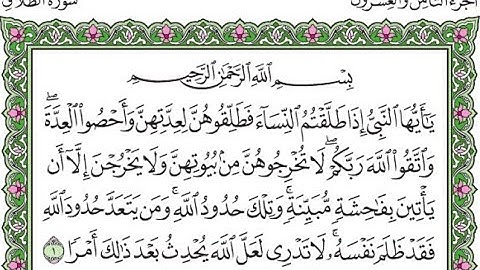 سورة الطلاق الجزء الثامن والعشرون
بِسْمِ ٱللَّهِ ٱلرَّحْمَٰنِ ٱلرَّحِيمِ
يَٰٓأَيُّهَا ٱلنَّبِىُّ إِذَا طَلَّقْتُمُ ٱلنِّسَآءَ فَطَلِّقُوهُنَّ لِعِدَّتِهِنَّ وَأَحْصُوا۟ ٱلْعِدَّةَ ۖ
وَٱتَّقُوا۟ ٱللَّهَ رَبَّكُمْ ۖ لَا تُخْرِجُوهُنَّ مِنۢ بُيُوتِهِنَّ وَلَا يَخْرُجْنَ إِلَّآ أَن
يَأْتِينَ بِفَٰحِشَةٍ مُّبَيِّنَةٍ ۚ وَتِلْكَ حُدُودُ ٱللَّهِ ۚ وَمَن يَتَعَدَّ حُدُودَ ٱللَّهِ
فَقَدْ ظَلَمَ نَفْسَهُۥ ۚ لَا تَدْرِى لَعَلَّ ٱللَّهَ يُحْدِثُ بَعْدَ ذَٰلِكَ أَمْرًا ١